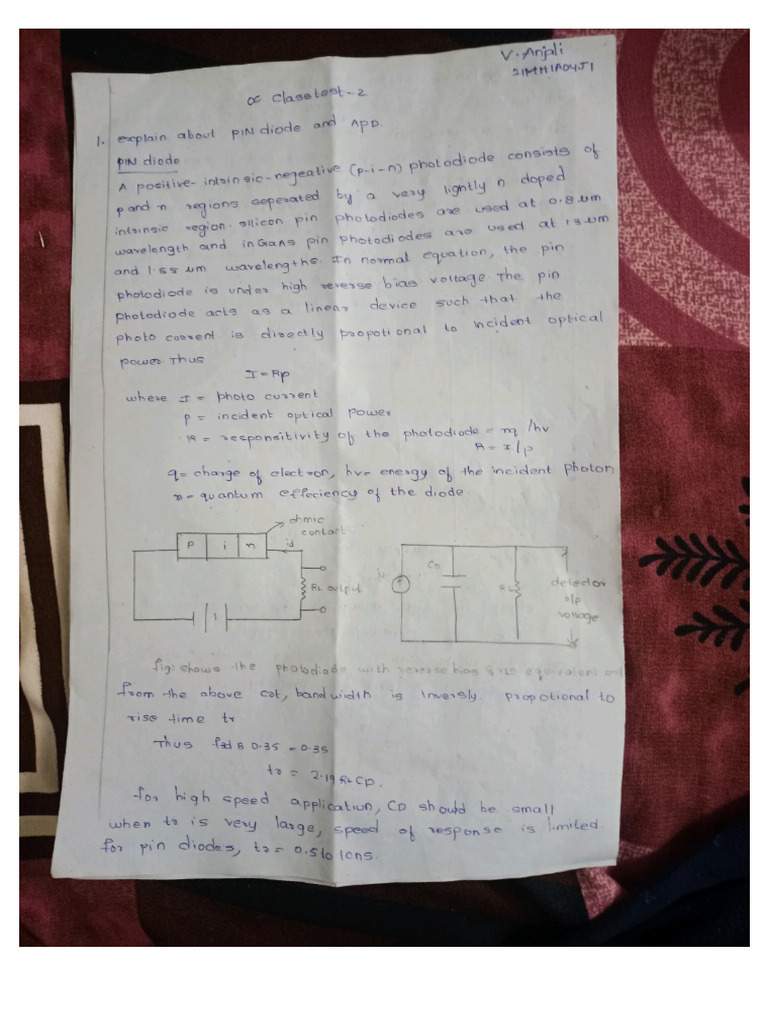 V. Anjali
21MH1A04J1
OC Classtest-2
1. explain about PIN diode and APD.
PIN diode
A positive-intrinsic-negeative (p-i-n) photodiode consists of
p and n regions seperated by a very lightly n doped
intrinsic region. silicon pin photodiodes are used at 0.8 um
wavelength and inGaAs pin photodiodes are used at 1.3 um
and 1.55 um wavelengths. In normal equation, the pin
photodiode is under high reverse bias voltage. The pin
photodiode acts as a linear device such that the
photo current is directly propotional to incident optical
power. Thus
I = Rp
where I = photo current
p = incident optical power
R = responsitivity of the photodiode = nq /hv
R = I/p
q = charge of electron, hv = energy of the incident photon
n - quantum effeciency of the diode
ohmic
contact
p i n
id
RL output
CD
RL
detector
o/p
voltage
fig: shows the photodiode with reverse bias & its equivalent
from the above ckt, bandwidth is inversly propotional to
rise time tr
Thus f3dB 0.35 = 0.35
tr = 2.19 RL CD.
for high speed application, CD should be small
when tr is very large, speed of response is limited.
for pin diodes, tr = 0.5 to 10ns.